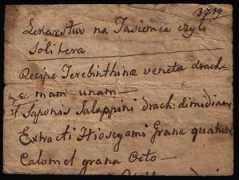 Lekarstwo na Tasiemca czyli
Solitera
Recipe Terebinthina veneta drach-
mam unam
Saponis Jalappini drach: dimidiam
Extracti Hioscyami Grana quatuor
Calomel grana Octo